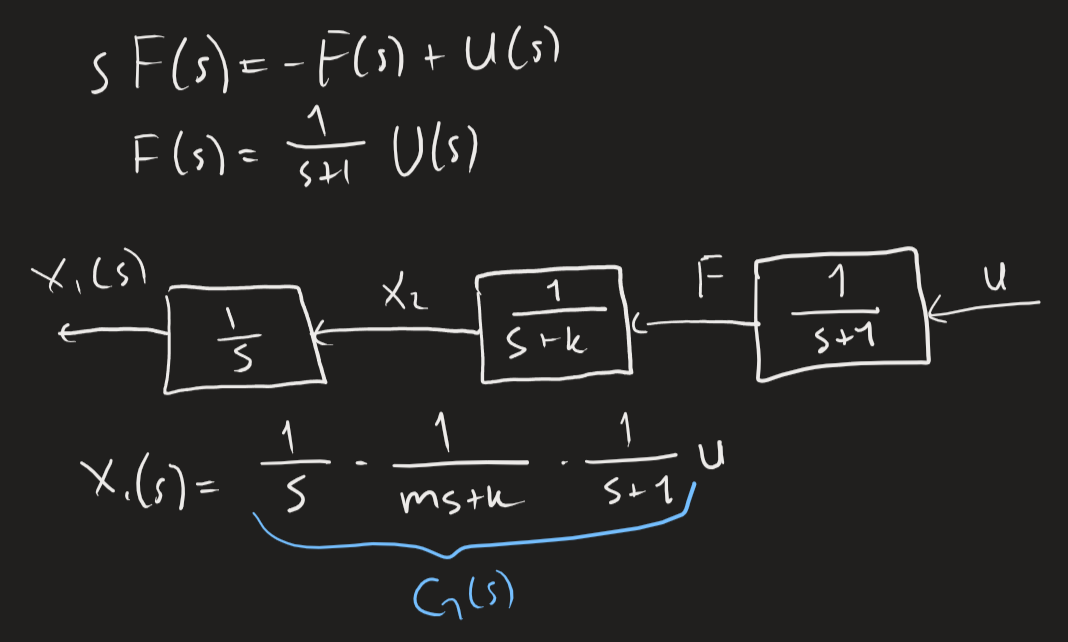 s F(s) = -F(s) + U(s)
F(s) = 1/(s+1) U(s)
X₁(s) 1/s X₂ 1/(s+k) F 1/(s+1) u
X₁(s) = 1/s · 1/(ms+k) · 1/(s+1) u
G(s)